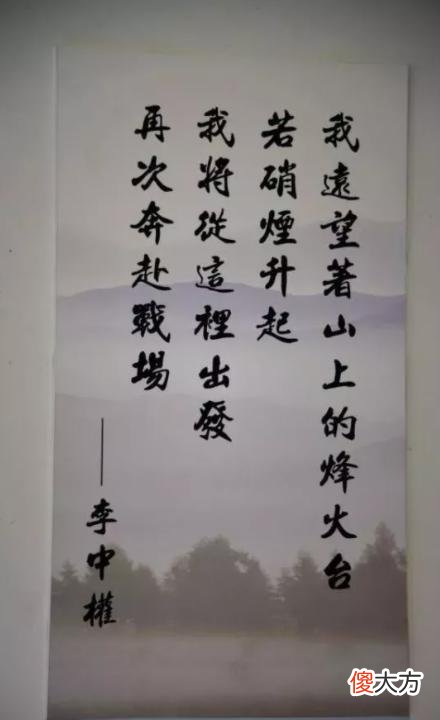 我遠望著山上的烽火台
若硝煙升起
我將從這裡出發
再次奔赴戰場
——李中權
傻大方